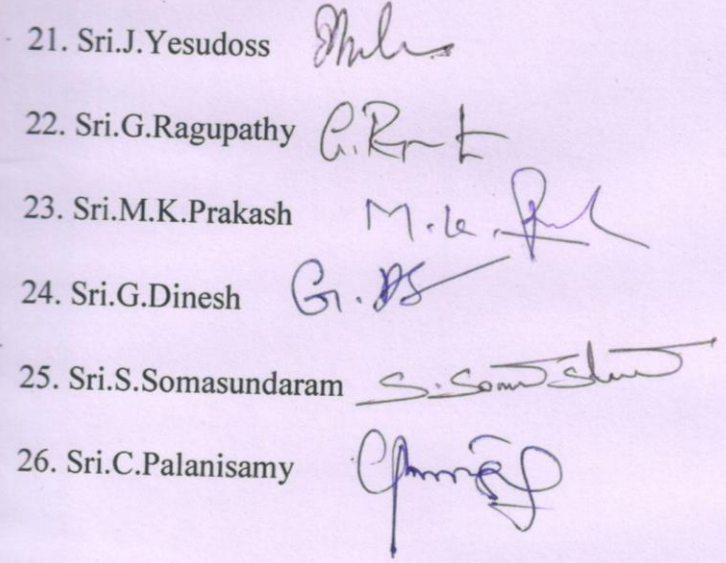 21. Sri.J.Yesudoss
22. Sri.G.Ragupathy
23. Sri.M.K.Prakash M.K.
24. Sri.G.Dinesh G.
25. Sri.S.Somasundaram S.
26. Sri.C.Palanisamy